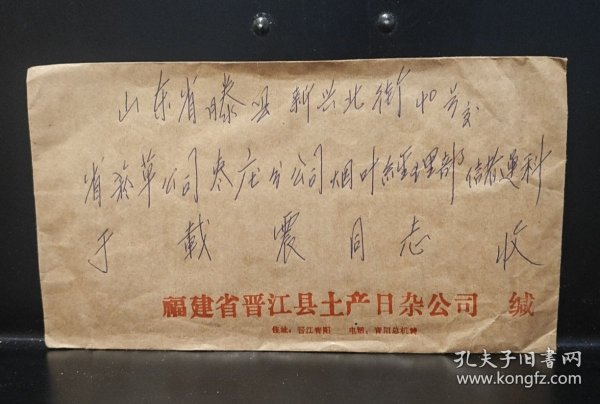 山东省滕县新兴北街40号交
省菸草公司枣庄分公司烟叶经理部储运科
于載震同志 收
福建省晋江县土产日杂公司 缄
住址：晋江青阳 电话：青阳总机转
孔夫子旧书网
www.kongfz.com